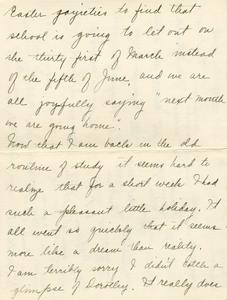 Easter gayieties to find that
school is going to let out on
the thirty first of March instead
of the fifth of June, and we are
all joyfully saying "next month
we are going home".
Now that I am back in the old
routine of study it seems hard to
realize that for a short week I had
such a pleasant little holiday. It
all went so quickly that it seems
more like a dream than reality.
I am terribly sorry I didn't catch a
glimpse of Dorothy. It really does